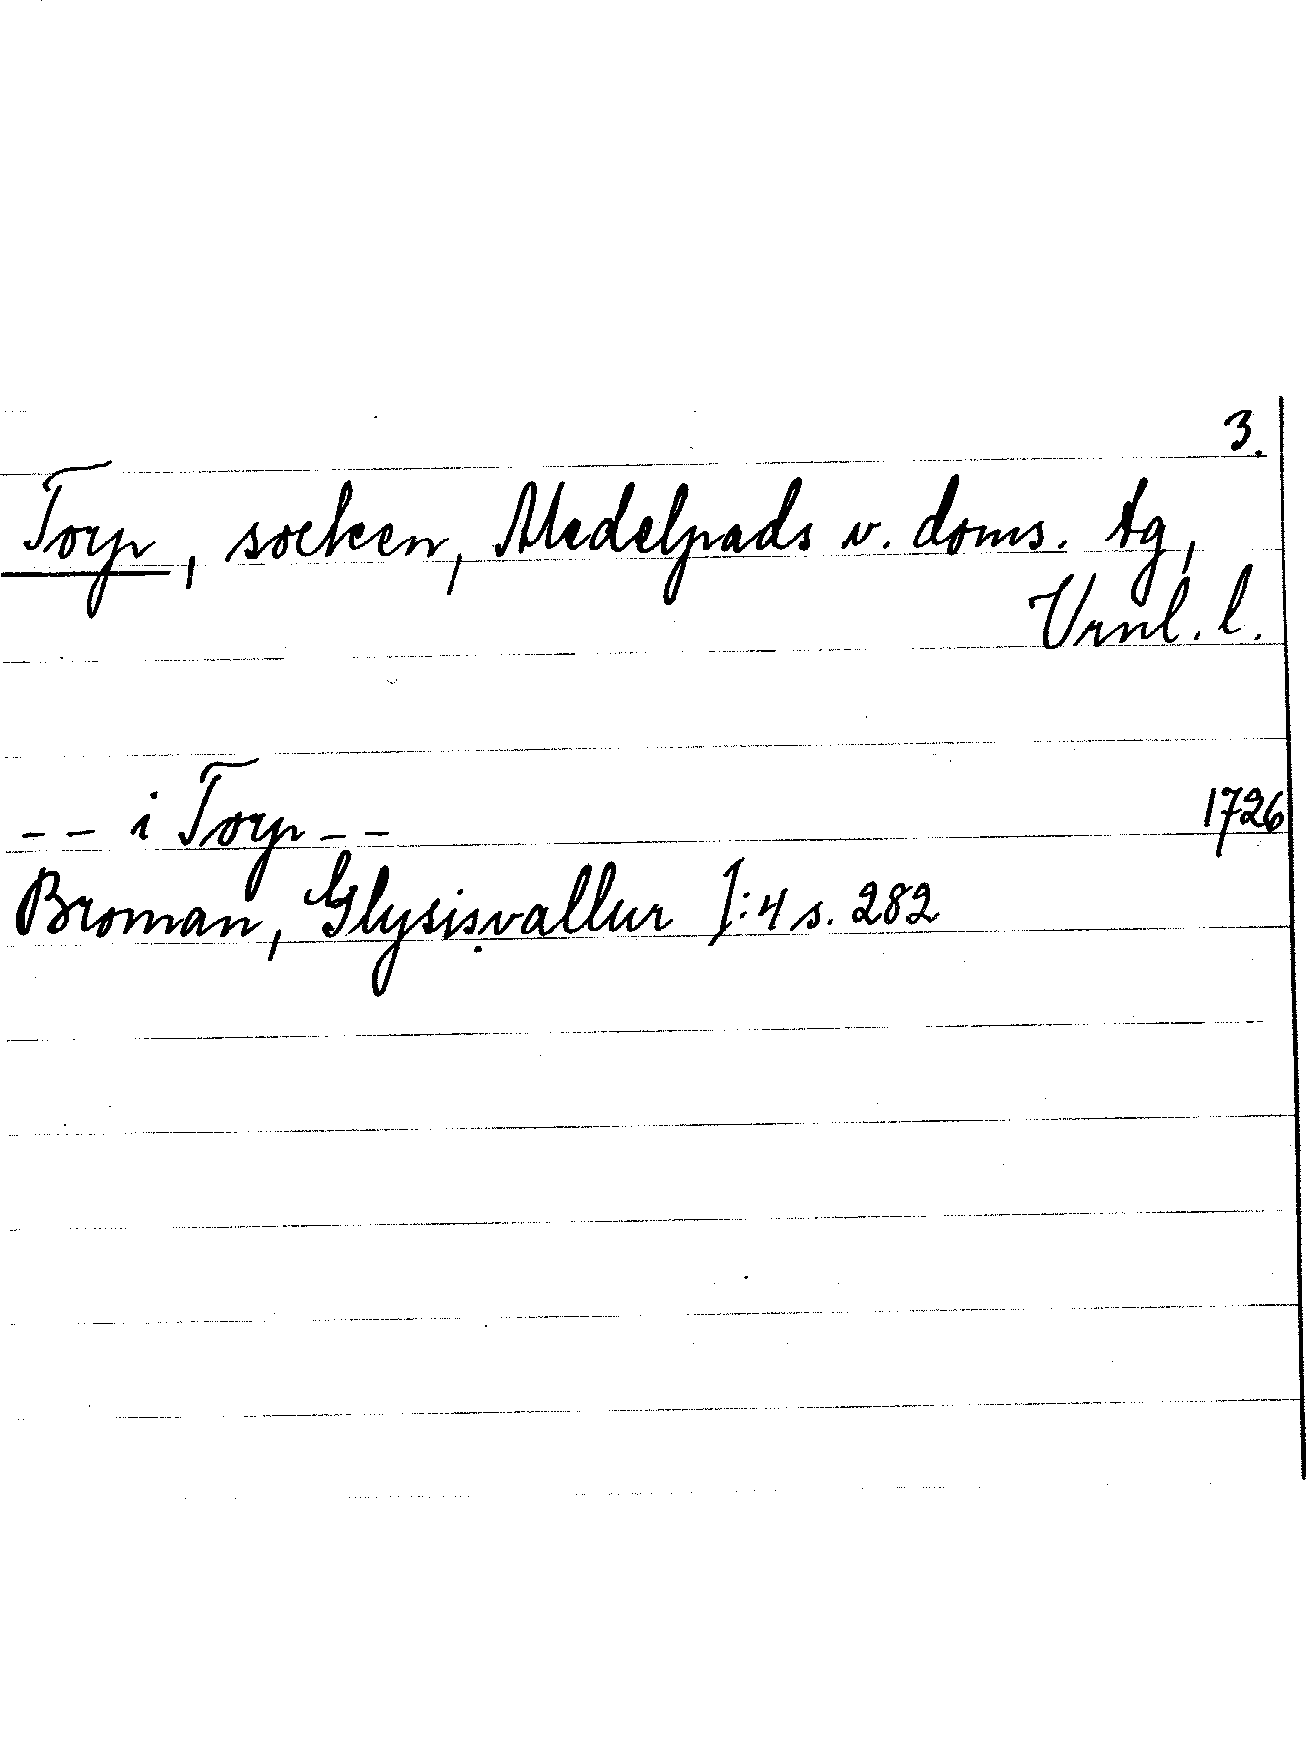 3.
Torp, socken, Medelpads v. doms. tg,
Vrnl. l.
-- i Torp --
1726
Broman, Glysisvallur I:4 s. 282